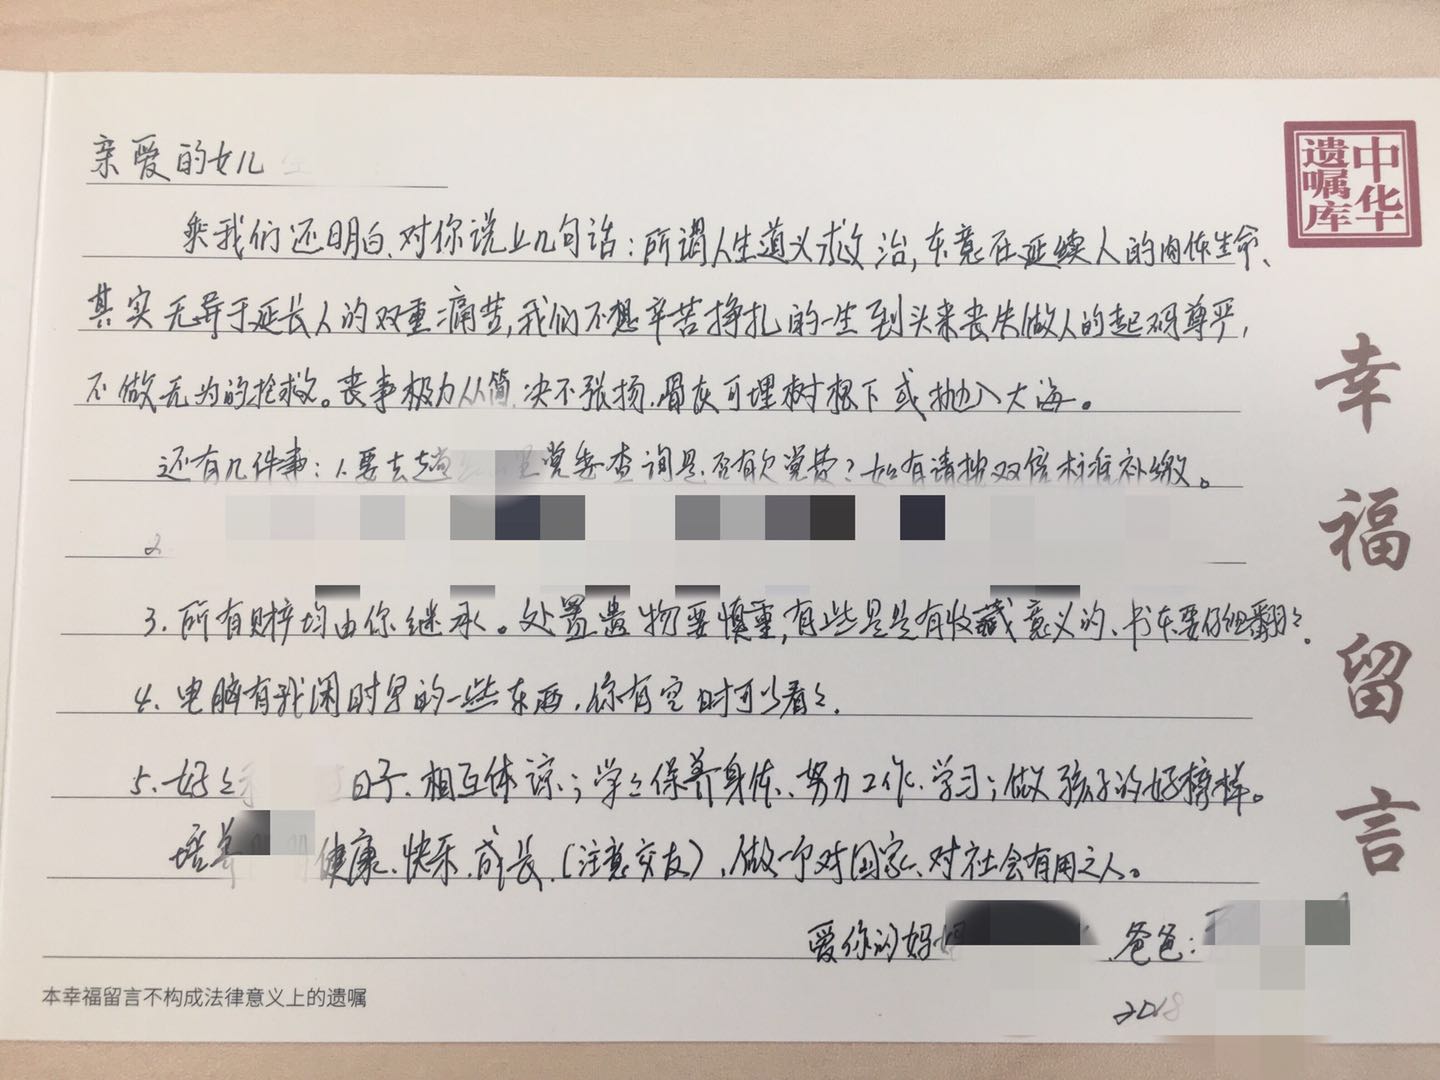 亲爱的女儿
中华遗嘱库
乘我们还明白、对你说上几句话：所谓人生道义求救治，在意在延续人的肉体生命、
其实无异于延长人的双重痛苦，我们不想辛苦挣扎的一生到头来丧失做人的起码尊严，
不做无为的抢救。丧事极力从简，决不张扬，骨灰可埋树根下或抛入大海。
还有几件事：1.要去 党委查询是否有欠党费？如有请按双倍标准补缴。
2.
3.所有财产均由你继承。处置遗物要慎重，有些是是有收藏意义的、书本要仔细翻翻。
4.电脑有我闲时写的一些东西，你有空时可以看看。
5.好好 日子、相互体谅；学学保养身体、努力工作、学习；做孩子的好榜样。
培养 健康、快乐、成长、(注意交友)，做一个对国家、对社会有用之人。
爱你的妈妈 、爸爸：
2018
幸福留言
本幸福留言不构成法律意义上的遗嘱